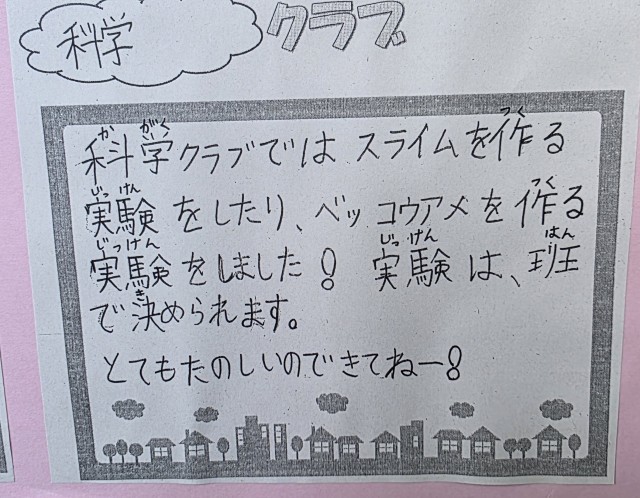 科学 クラブ
科学クラブでは スライムを作る
実験をしたり、ベッコウアメを作る
実験をしました! 実験は、班
で決められます。
とてもたのしいのできてねー!